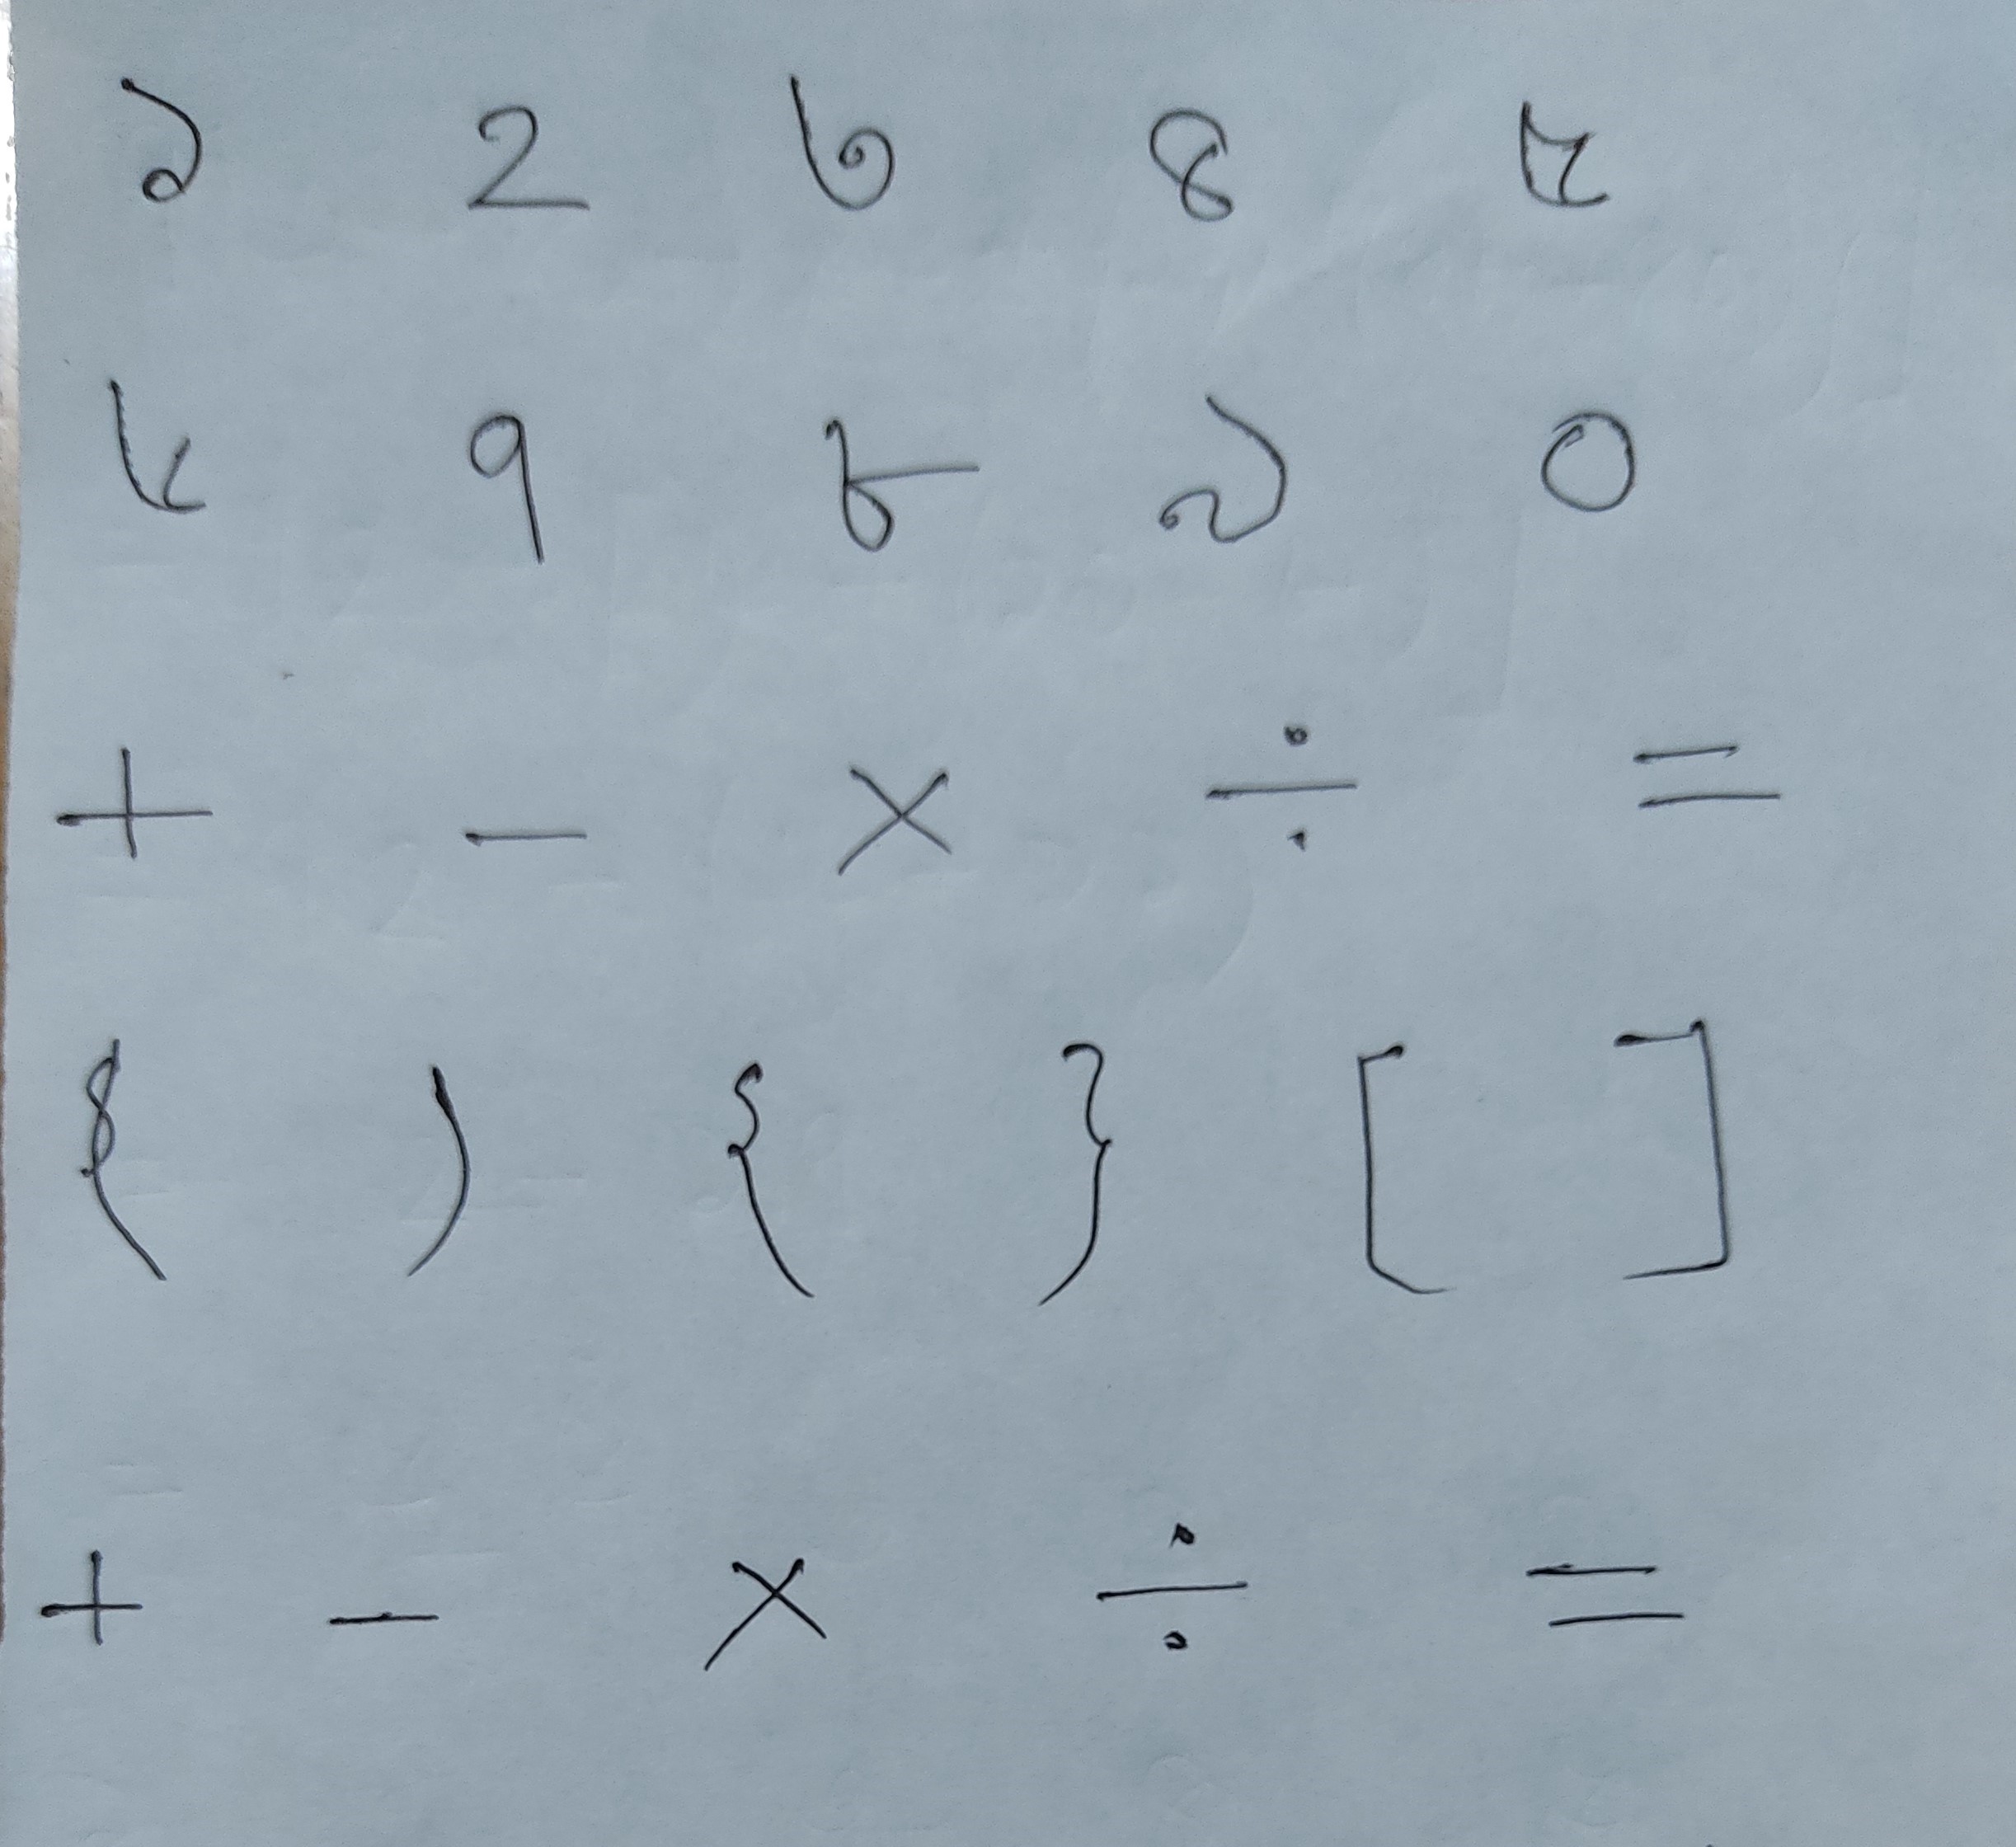 ১ ২ ৩ ৪ ৫
৬ ৭ ৮ ৯ ০
+ − × ÷ =
( ) { } [ ]
+ − × ÷ =